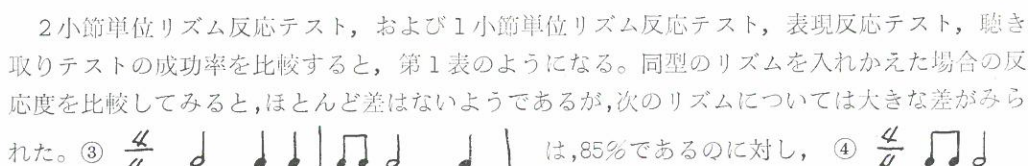 2小節単位リズム反応テスト，および1小節単位リズム反応テスト，表現反応テスト，聴き
取りテストの成功率を比較すると，第1表のようになる。同型のリズムを入れかえた場合の反
応度を比較してみると,ほとんど差はないようであるが,次のリズムについては大きな差がみら
れた。③ 4/4 は,85%であるのに対し，④ 4/4